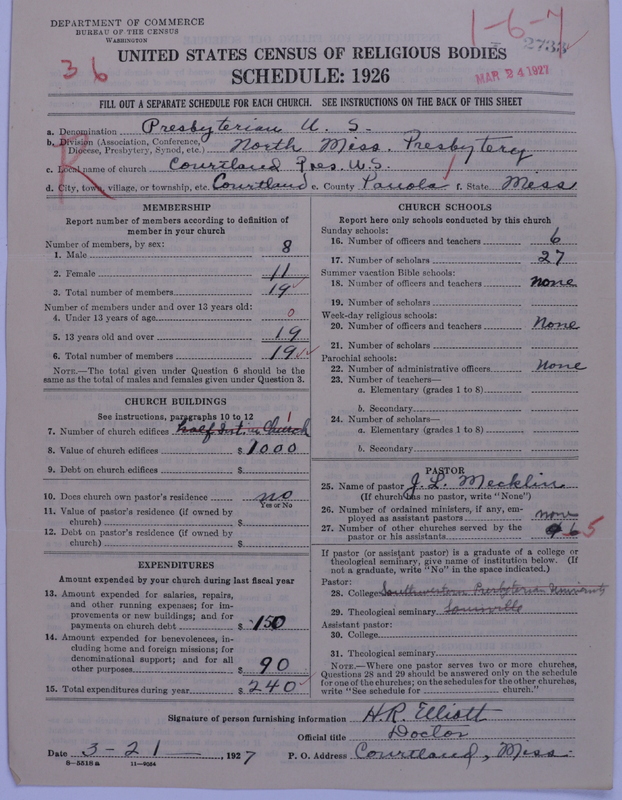 DEPARTMENT OF COMMERCE
BUREAU OF THE CENSUS
WASHINGTON
1-6-7
2733
36
UNITED STATES CENSUS OF RELIGIOUS BODIES
MAR 24 1927
SCHEDULE: 1926
FILL OUT A SEPARATE SCHEDULE FOR EACH CHURCH. SEE INSTRUCTIONS ON THE BACK OF THIS SHEET
R
a. Denomination Presbyterian U. S.
b. Division (Association, Conference, Diocese, Presbytery, Synod, etc.) North Miss. Presbytery
c. Local name of church Courtland Pres. U.S.
d. City, town, village, or township, etc. Courtland e. County Panola f. State Miss
MEMBERSHIP
Report number of members according to definition of
member in your church
Number of members, by sex:
1. Male 8
2. Female 11
3. Total number of members 19
Number of members under and over 13 years old:
4. Under 13 years of age 0
5. 13 years old and over 19
6. Total number of members 19
NOTE.—The total given under Question 6 should be
same as the total of males and females given under Question 3.
CHURCH BUILDINGS
See instructions, paragraphs 10 to 12
1
7. Number of church edifices half Int. in Church
8. Value of church edifices $ 1000
9. Debt on church edifices $
10. Does church own pastor's residence no
Yes or No
11. Value of pastor's residence (if owned by
church) $
12. Debt on pastor's residence (if owned by
church) $
EXPENDITURES
Amount expended by your church during last fiscal year
13. Amount expended for salaries, repairs,
and other running expenses; for im-
provements or new buildings; and for
payments on church debt $ 150
14. Amount expended for benevolences, in-
cluding home and foreign missions; for
denominational support; and for all
other purposes $ 90
15. Total expenditures during year $ 240
CHURCH SCHOOLS
Report here only schools conducted by this church
Sunday schools:
16. Number of officers and teachers 6
17. Number of scholars 27
Summer vacation Bible schools:
18. Number of officers and teachers none
19. Number of scholars
Week-day religious schools:
20. Number of officers and teachers None
21. Number of scholars
Parochial schools:
22. Number of administrative officers None
23. Number of teachers—
a. Elementary (grades 1 to 8)
b. Secondary
24. Number of scholars—
a. Elementary (grades 1 to 8)
b. Secondary
PASTOR
25. Name of pastor J. L. Mecklin
(If church has no pastor, write "None")
26. Number of ordained ministers, if any, em-
ployed as assistant pastors none
27. Number of other churches served by the
pastor or his assistants 6 5
If pastor (or assistant pastor) is a graduate of a college or
theological seminary, give name of institution below. (If
not a graduate, write "No" in the space indicated.)
Pastor:
28. College Southwestern Presbyterian University
29. Theological seminary Louisville
Assistant pastor:
30. College
31. Theological seminary
NOTE.—Where one pastor serves two or more churches,
Questions 28 and 29 should be answered only on the schedule
for one of the churches; on the schedules for the other churches,
write "See schedule for church."
Signature of person furnishing information H. R. Elliott
Official title Doctor
Date 3-21, 1927 P. O. Address Courtland, Miss.
8-5518a 11-9054